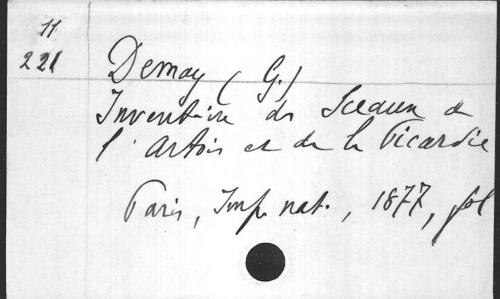 11
221
Demay (G.)
Inventaire des Sceaux de
l'Artois et de la Picardie
Paris, Imp. nat., 1877, fol